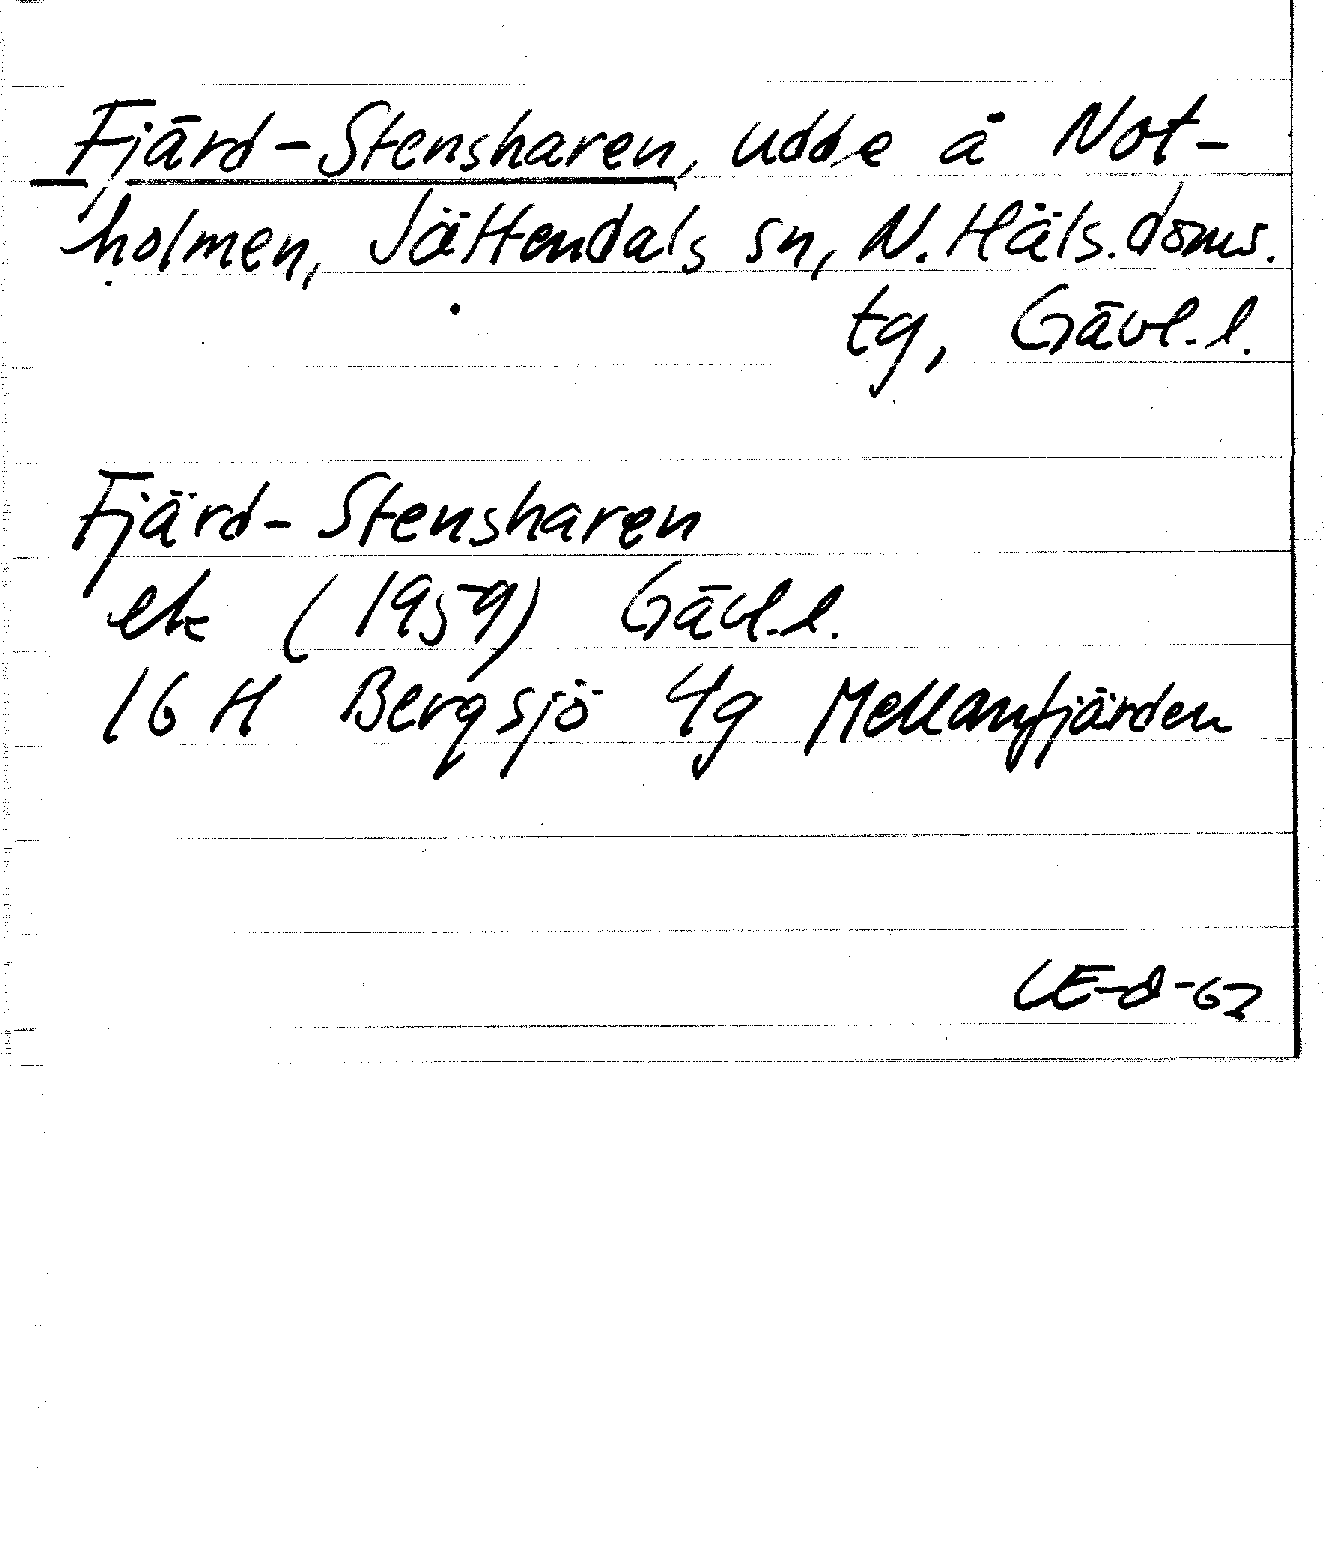 Fjärd-Stensharen, udde å Not-
holmen, Jättendals sn, N. Häls. doms.
tg, Gävl.l.
Fjärd-Stensharen
ek (1959) Gävl.l.
16 H Bergsjö 4g Mellanfjärden